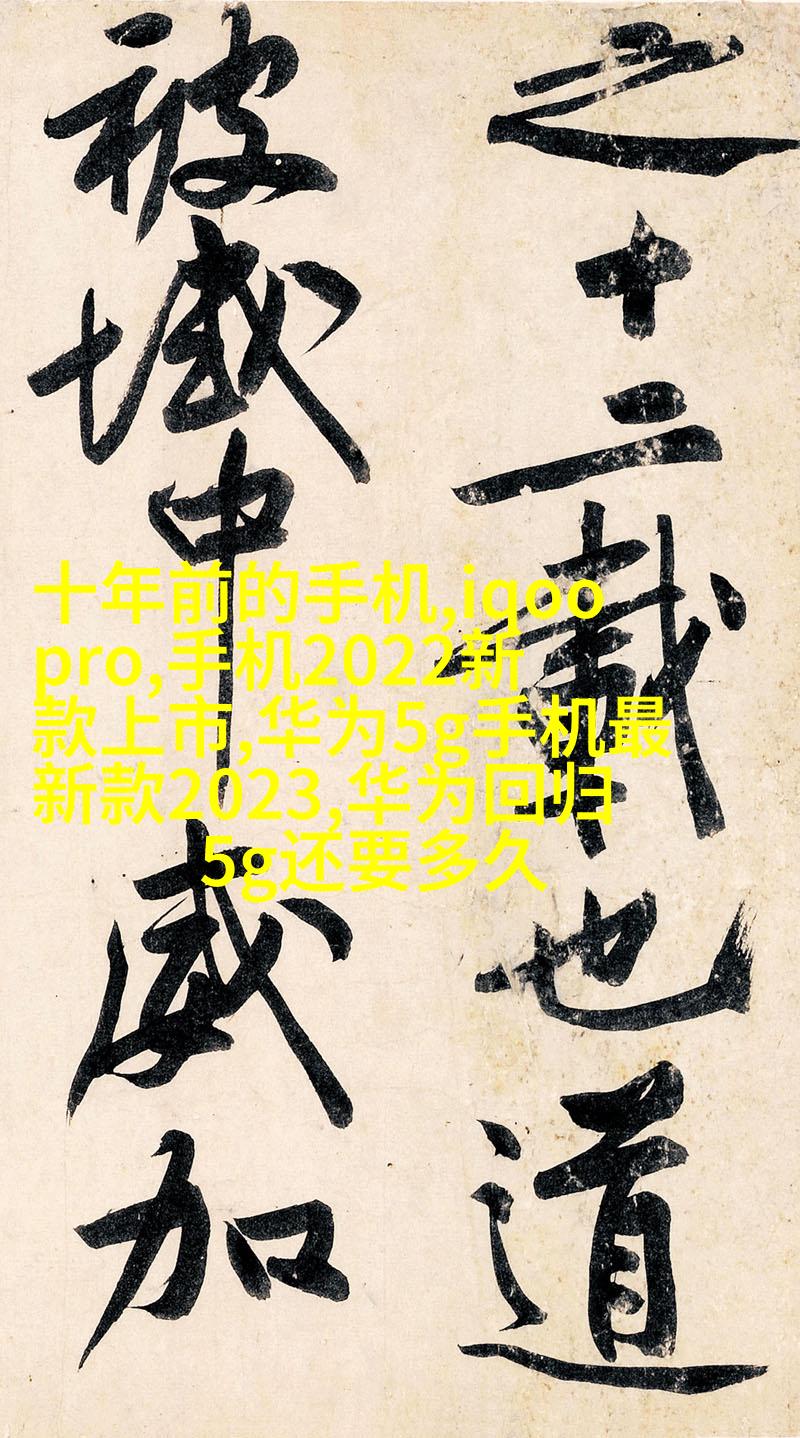 之十二載也道
被域中威加
十年前的手机,iqoo
pro,手机2022新
款上市,华为5g手机最
新款2023,华为回归
5g还要多久